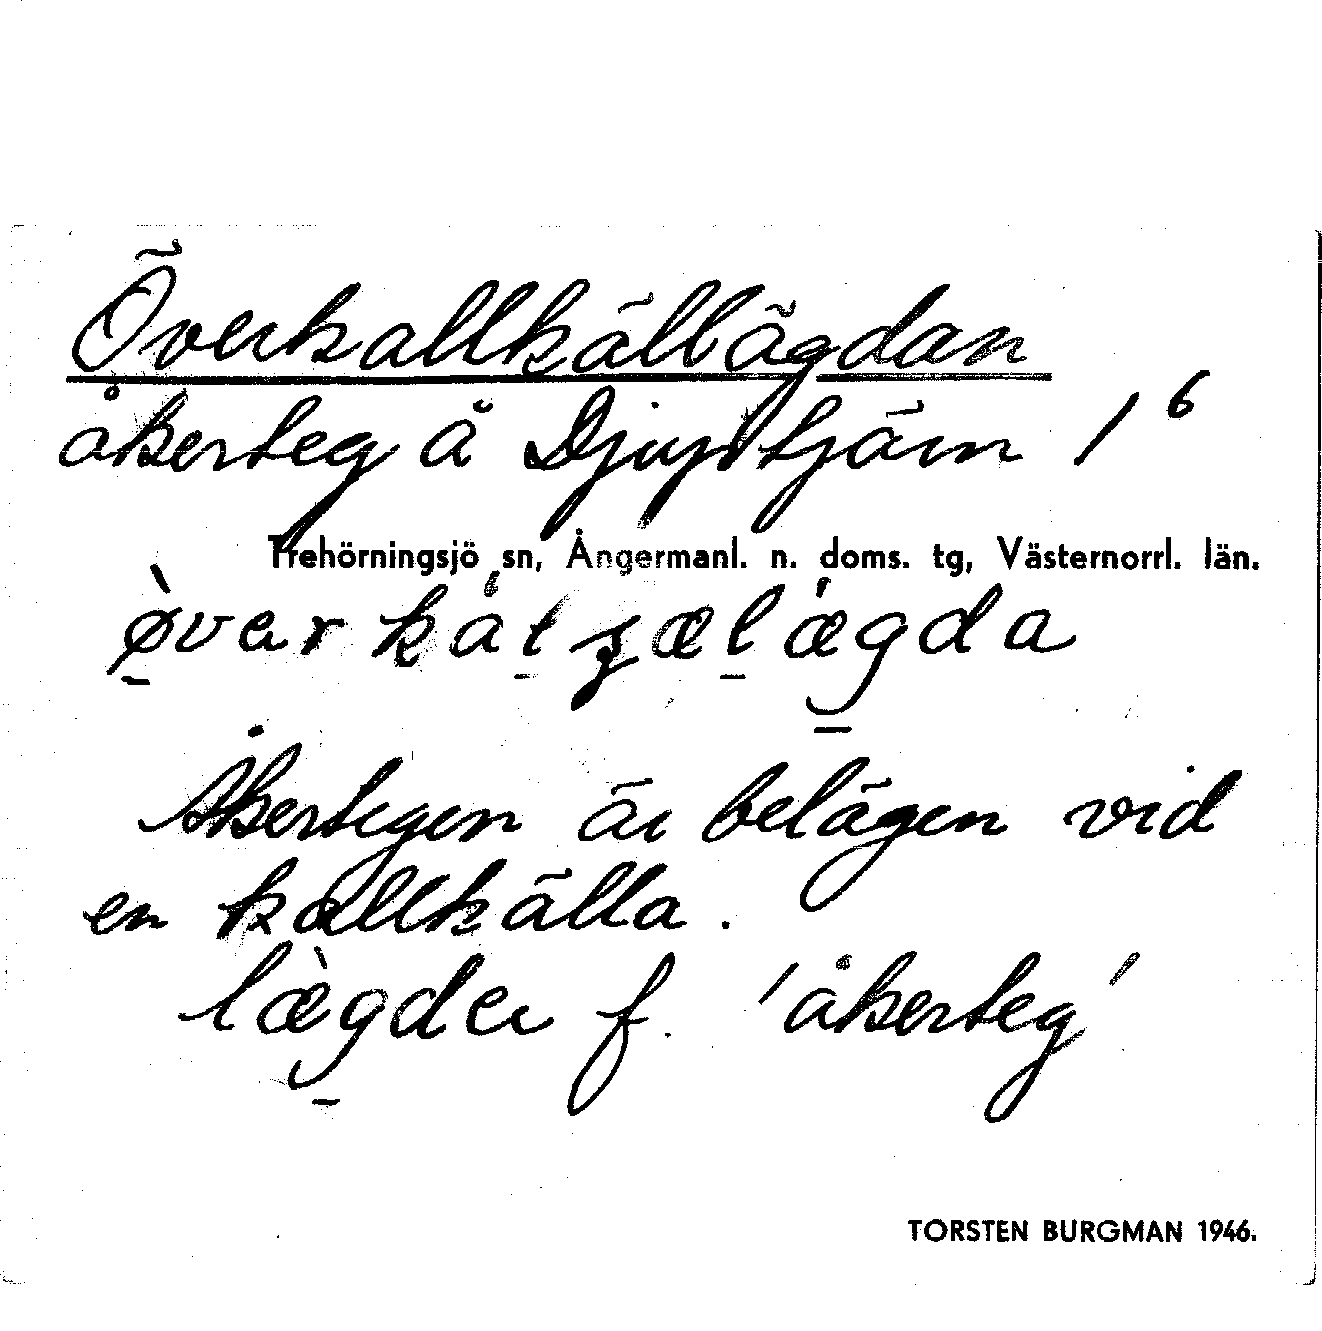 Överkallkällägdan
åkerteg å Djuptjärn 1⁶
Trehörningsjö sn, Ångermanl. n. doms. tg, Västernorrl. län.
Åkertegen är belägen vid
en kallkälla.
læ̀gder f. 'åkerteg'
TORSTEN BURGMAN 1946.